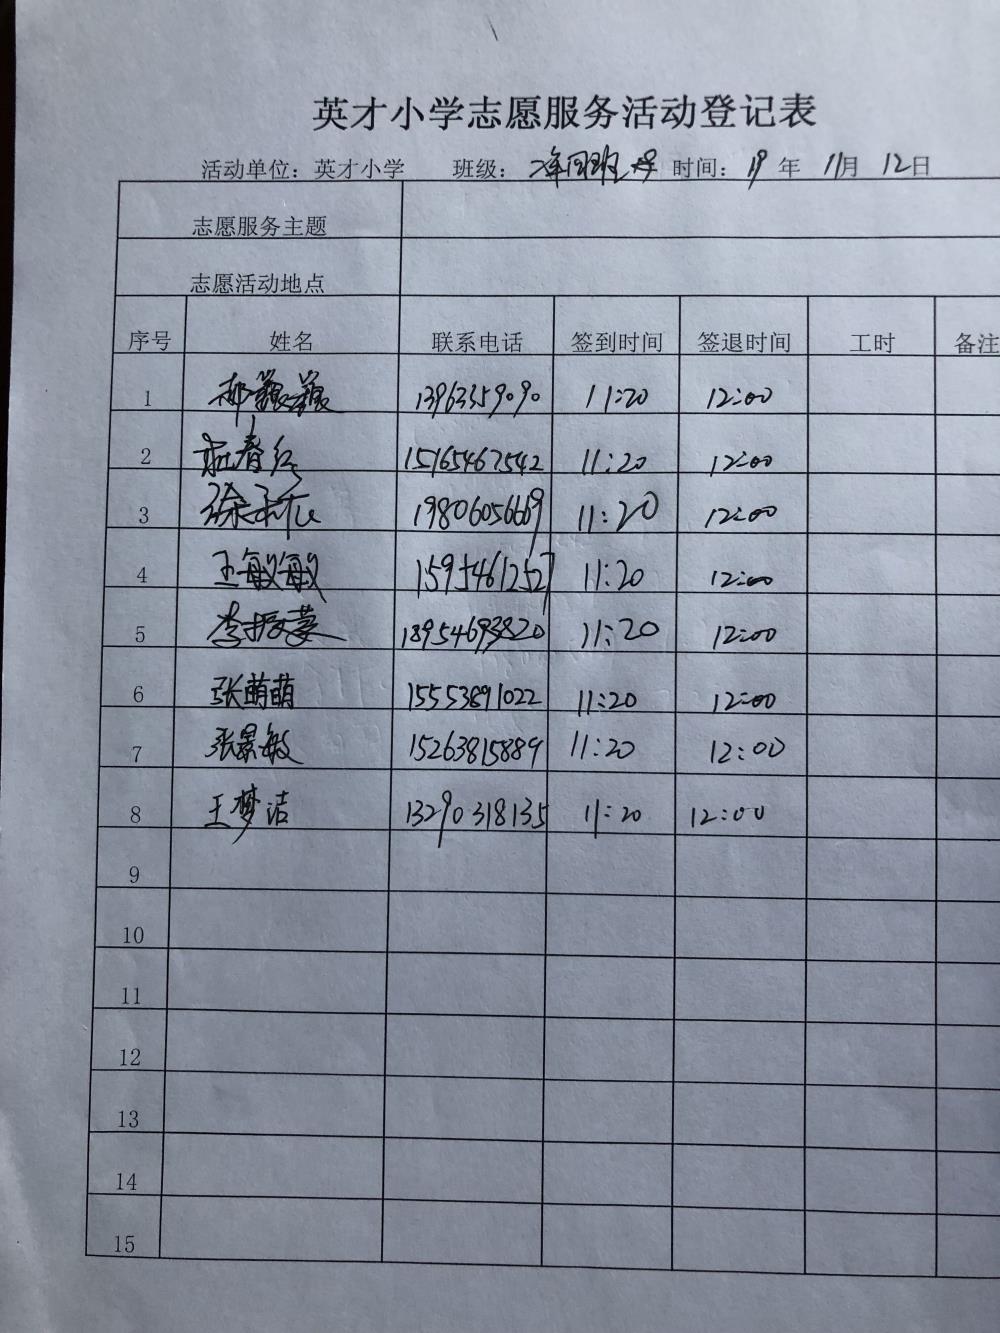 英才小学志愿服务活动登记表
活动单位：英才小学 班级： 时间：19 年 11月 12日
志愿服务主题
志愿活动地点
序号 姓名 联系电话 签到时间 签退时间 工时 备注
1 13963359090 11:20 12:00
2 杜春红 15165467542 11:20 12:00
3 19806056669 11:20 12:00
4 王敏敏 15954612527 11:20 12:00
5 李振蒙 18954693820 11:20 12:00
6 张萌萌 15553891022 11:20 12:00
7 张景敏 15263815889 11:20 12:00
8 王梦洁 13290318135 11:20 12:00
9
10
11
12
13
14
15